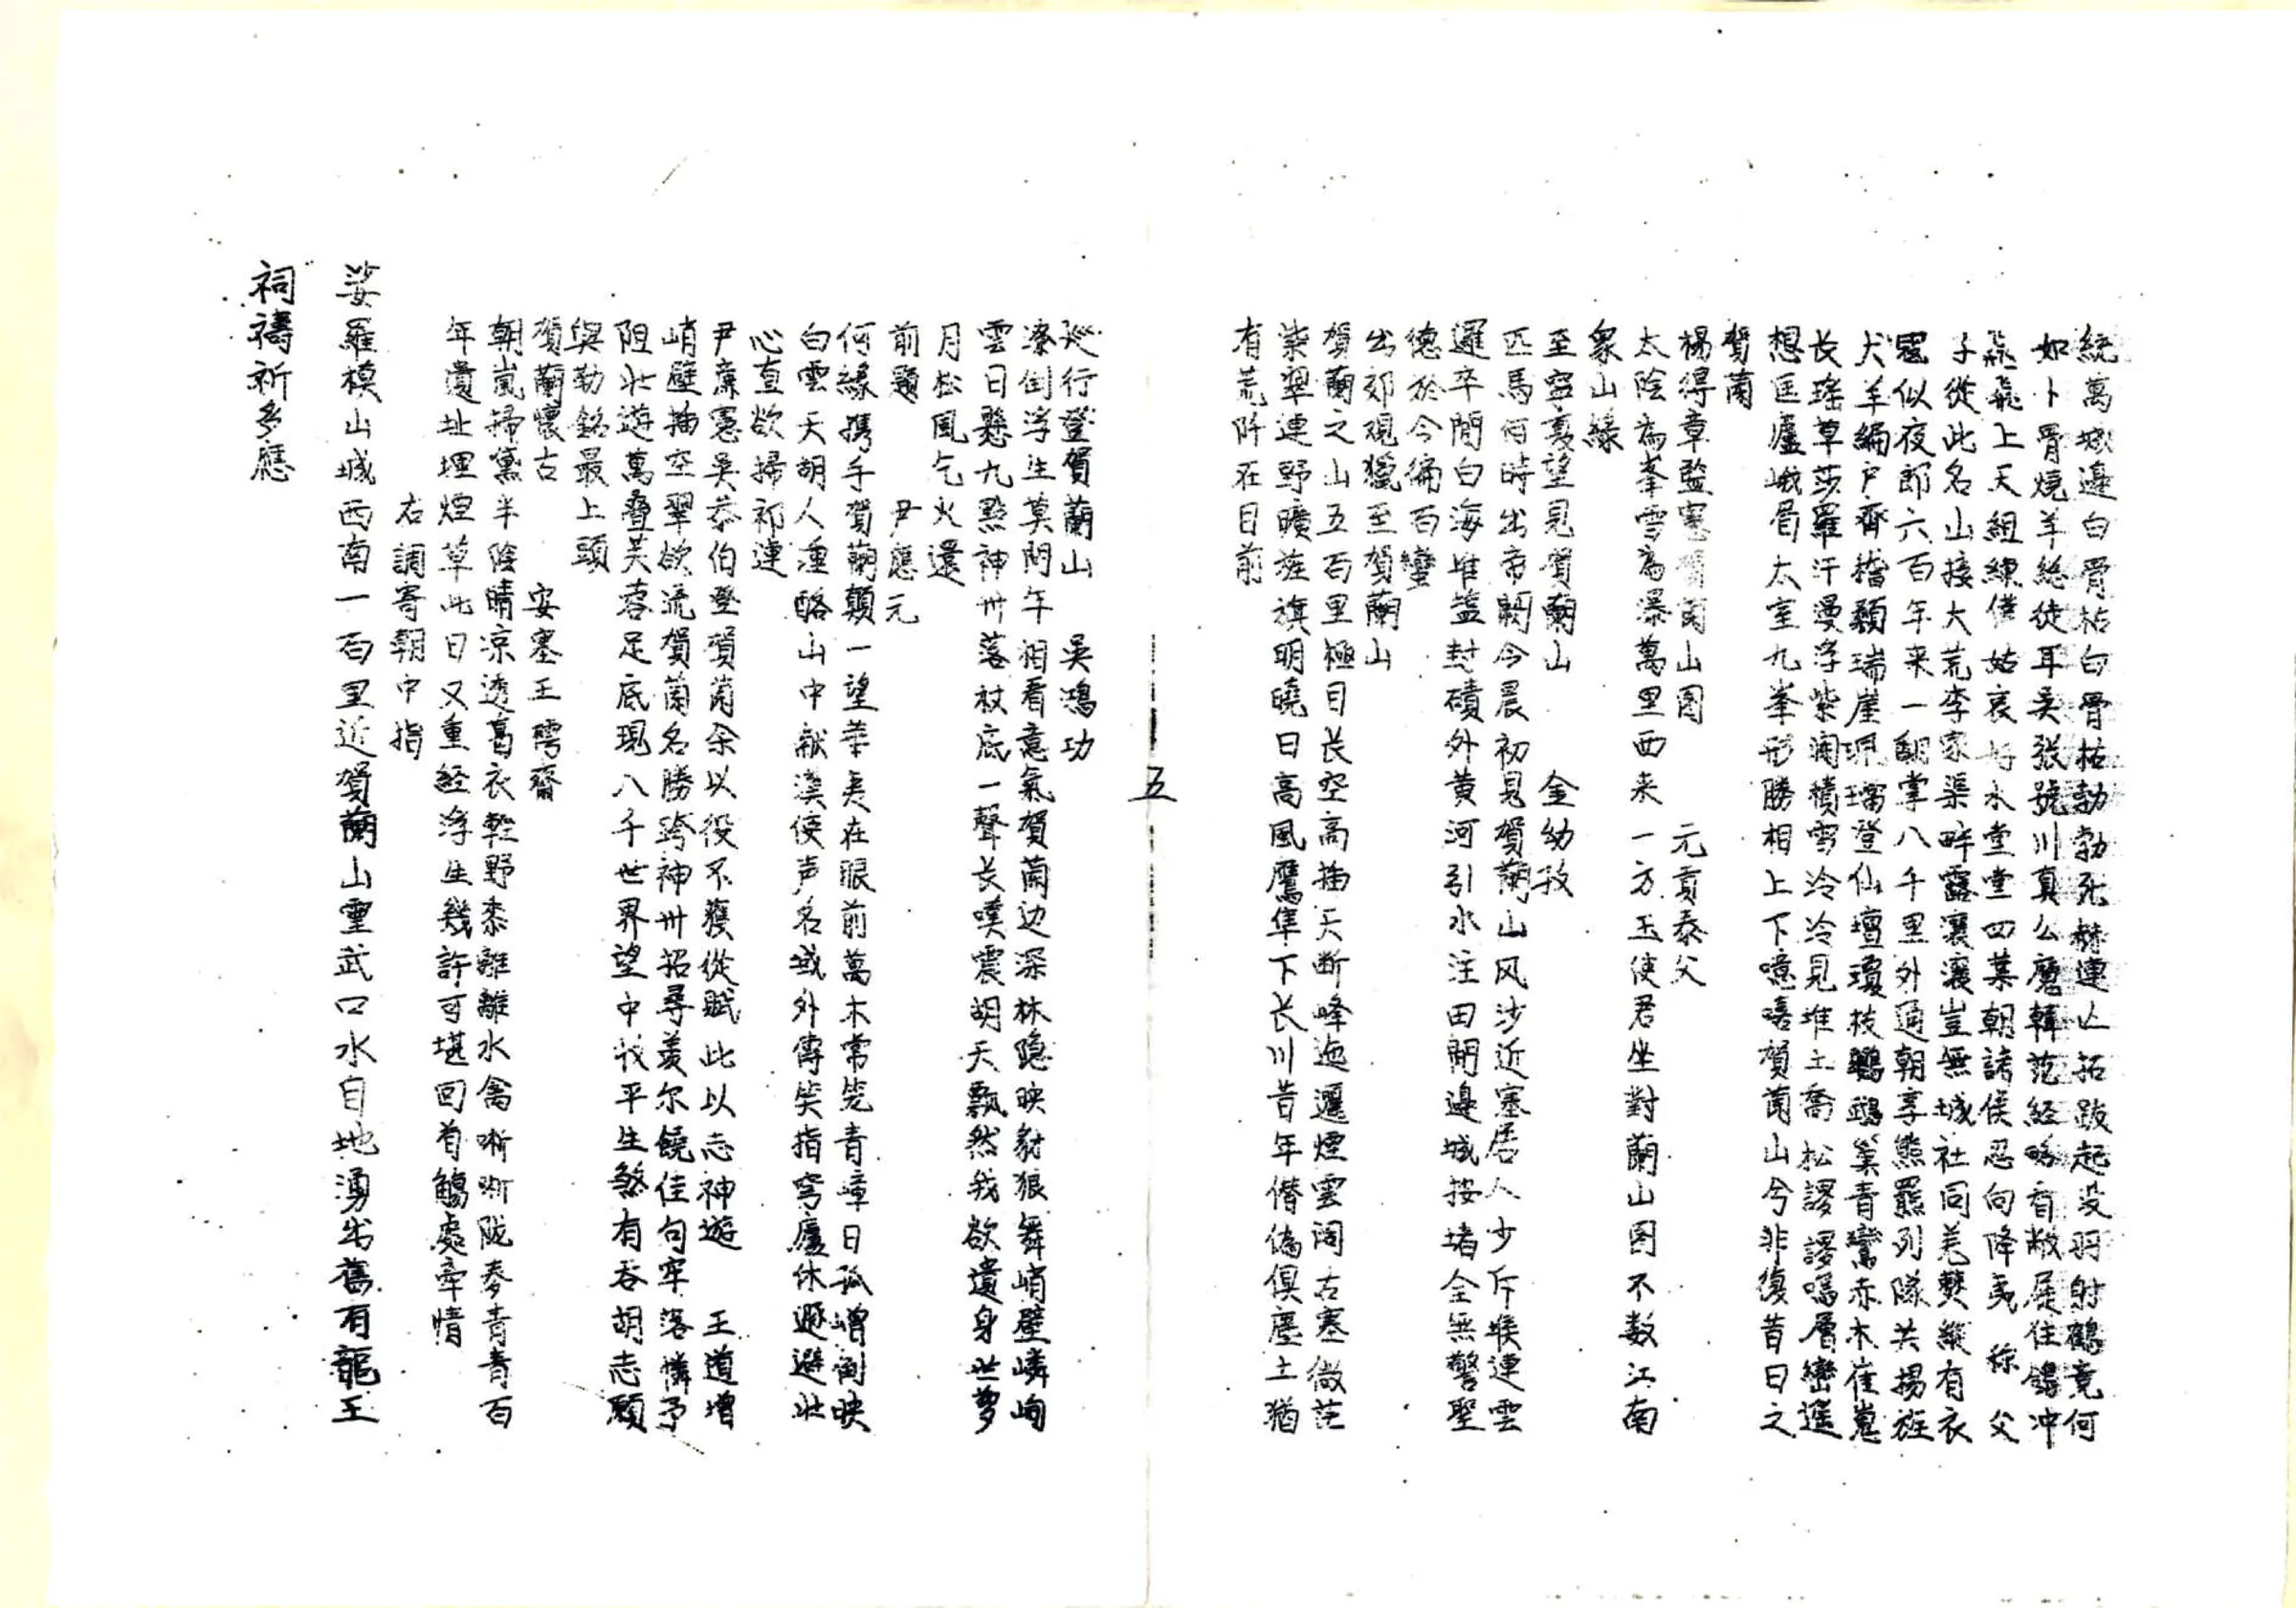 統萬城邊白骨枯白骨枯勃勃死赫連亾拓跋起没羽射鶴竟何
如卜骨燒羊総徒耳吴張號川真么麽韓范経略看敝屣住錫冲
飛飛上天組練僅姑哀好水堂堂四葉朝諸侯忍向降夷 称 父
子從此名山接大荒李家渠畔露瀼瀼豈無城社同羌僰縱有衣
冠似夜郎六百年来一翻掌八千里外通朝享熊羆列隊共揚旌
犬羊編戶齊稽顙瑞崖珮璫登仙壇瓊枝鵷鶵巢青鸞赤木崔嵬
长瑶草莎羅汗漫浮紫瀾積雪冷冷見堆土喬松謖謖嗚層巒遥
想匡廬峨眉太室九峯形勝相上下噫嘻賀蘭山兮非復昔日之
賀蘭
楊得章監憲賀蘭山图 元貢泰父
太陰為峯雪為瀑萬里西来一方玉使君坐對蘭山图不数江南
衆山緑
至寧夏望見賀蘭山 金幼孜
匹馬何時出帝關今晨初見賀蘭山风沙近塞居人少斥堠連雲
邏卒閒白海堆盐封磧外黄河引水注田間邉城按堵全無警聖
德於今徧百蠻
出郊观獵至賀蘭山
賀蘭之山五百里極目长空高插天断峰迤邐煙雲阔古塞微茫
紫翠連野曠旌旗明曉日高風鷹隼下长川昔年僭偽俱塵土猶
有荒阡在目前
五
巡行登賀蘭山 吳鴻功
潦倒浮生莫問年相看意氣賀蘭边深林隐映豺狼舞峭壁嶙峋
雲日懸九點神州落杖底一聲长嘆震胡天飄然我欲遺身世夢
月松風乞火還
前題 尹應元
何緣携手賀蘭顛一望華夷在眼前萬木常笼青嶂日孤嶒倒映
白雲天胡人湩酪山中献漢使声名域外傳笑指穹廬休遯避壯
心直欲掃祁連
尹廉憲吴恭伯登賀蘭余以役不獲從賦此以志神遊 王道增
峭壁插空翠欲流賀蘭名勝跨神州招尋羡尔饒佳句牢落憐予
阻壮遊萬叠芙蓉足底現八千世界望中收平生煞有吞胡志願
與勒銘最上頭
賀蘭懷古 安塞王 䨩齋
朝嵐掃黛半陰晴凉透葛衣輕野黍離離水禽哳哳陇麥青青百
年遺址埋煙草此日又重経浮生幾許可堪回首觸處牵情
右調寄朝中措
娑羅模山城西南一百里近賀蘭山靈武口水自地湧出舊有龍王
祠禱祈多應